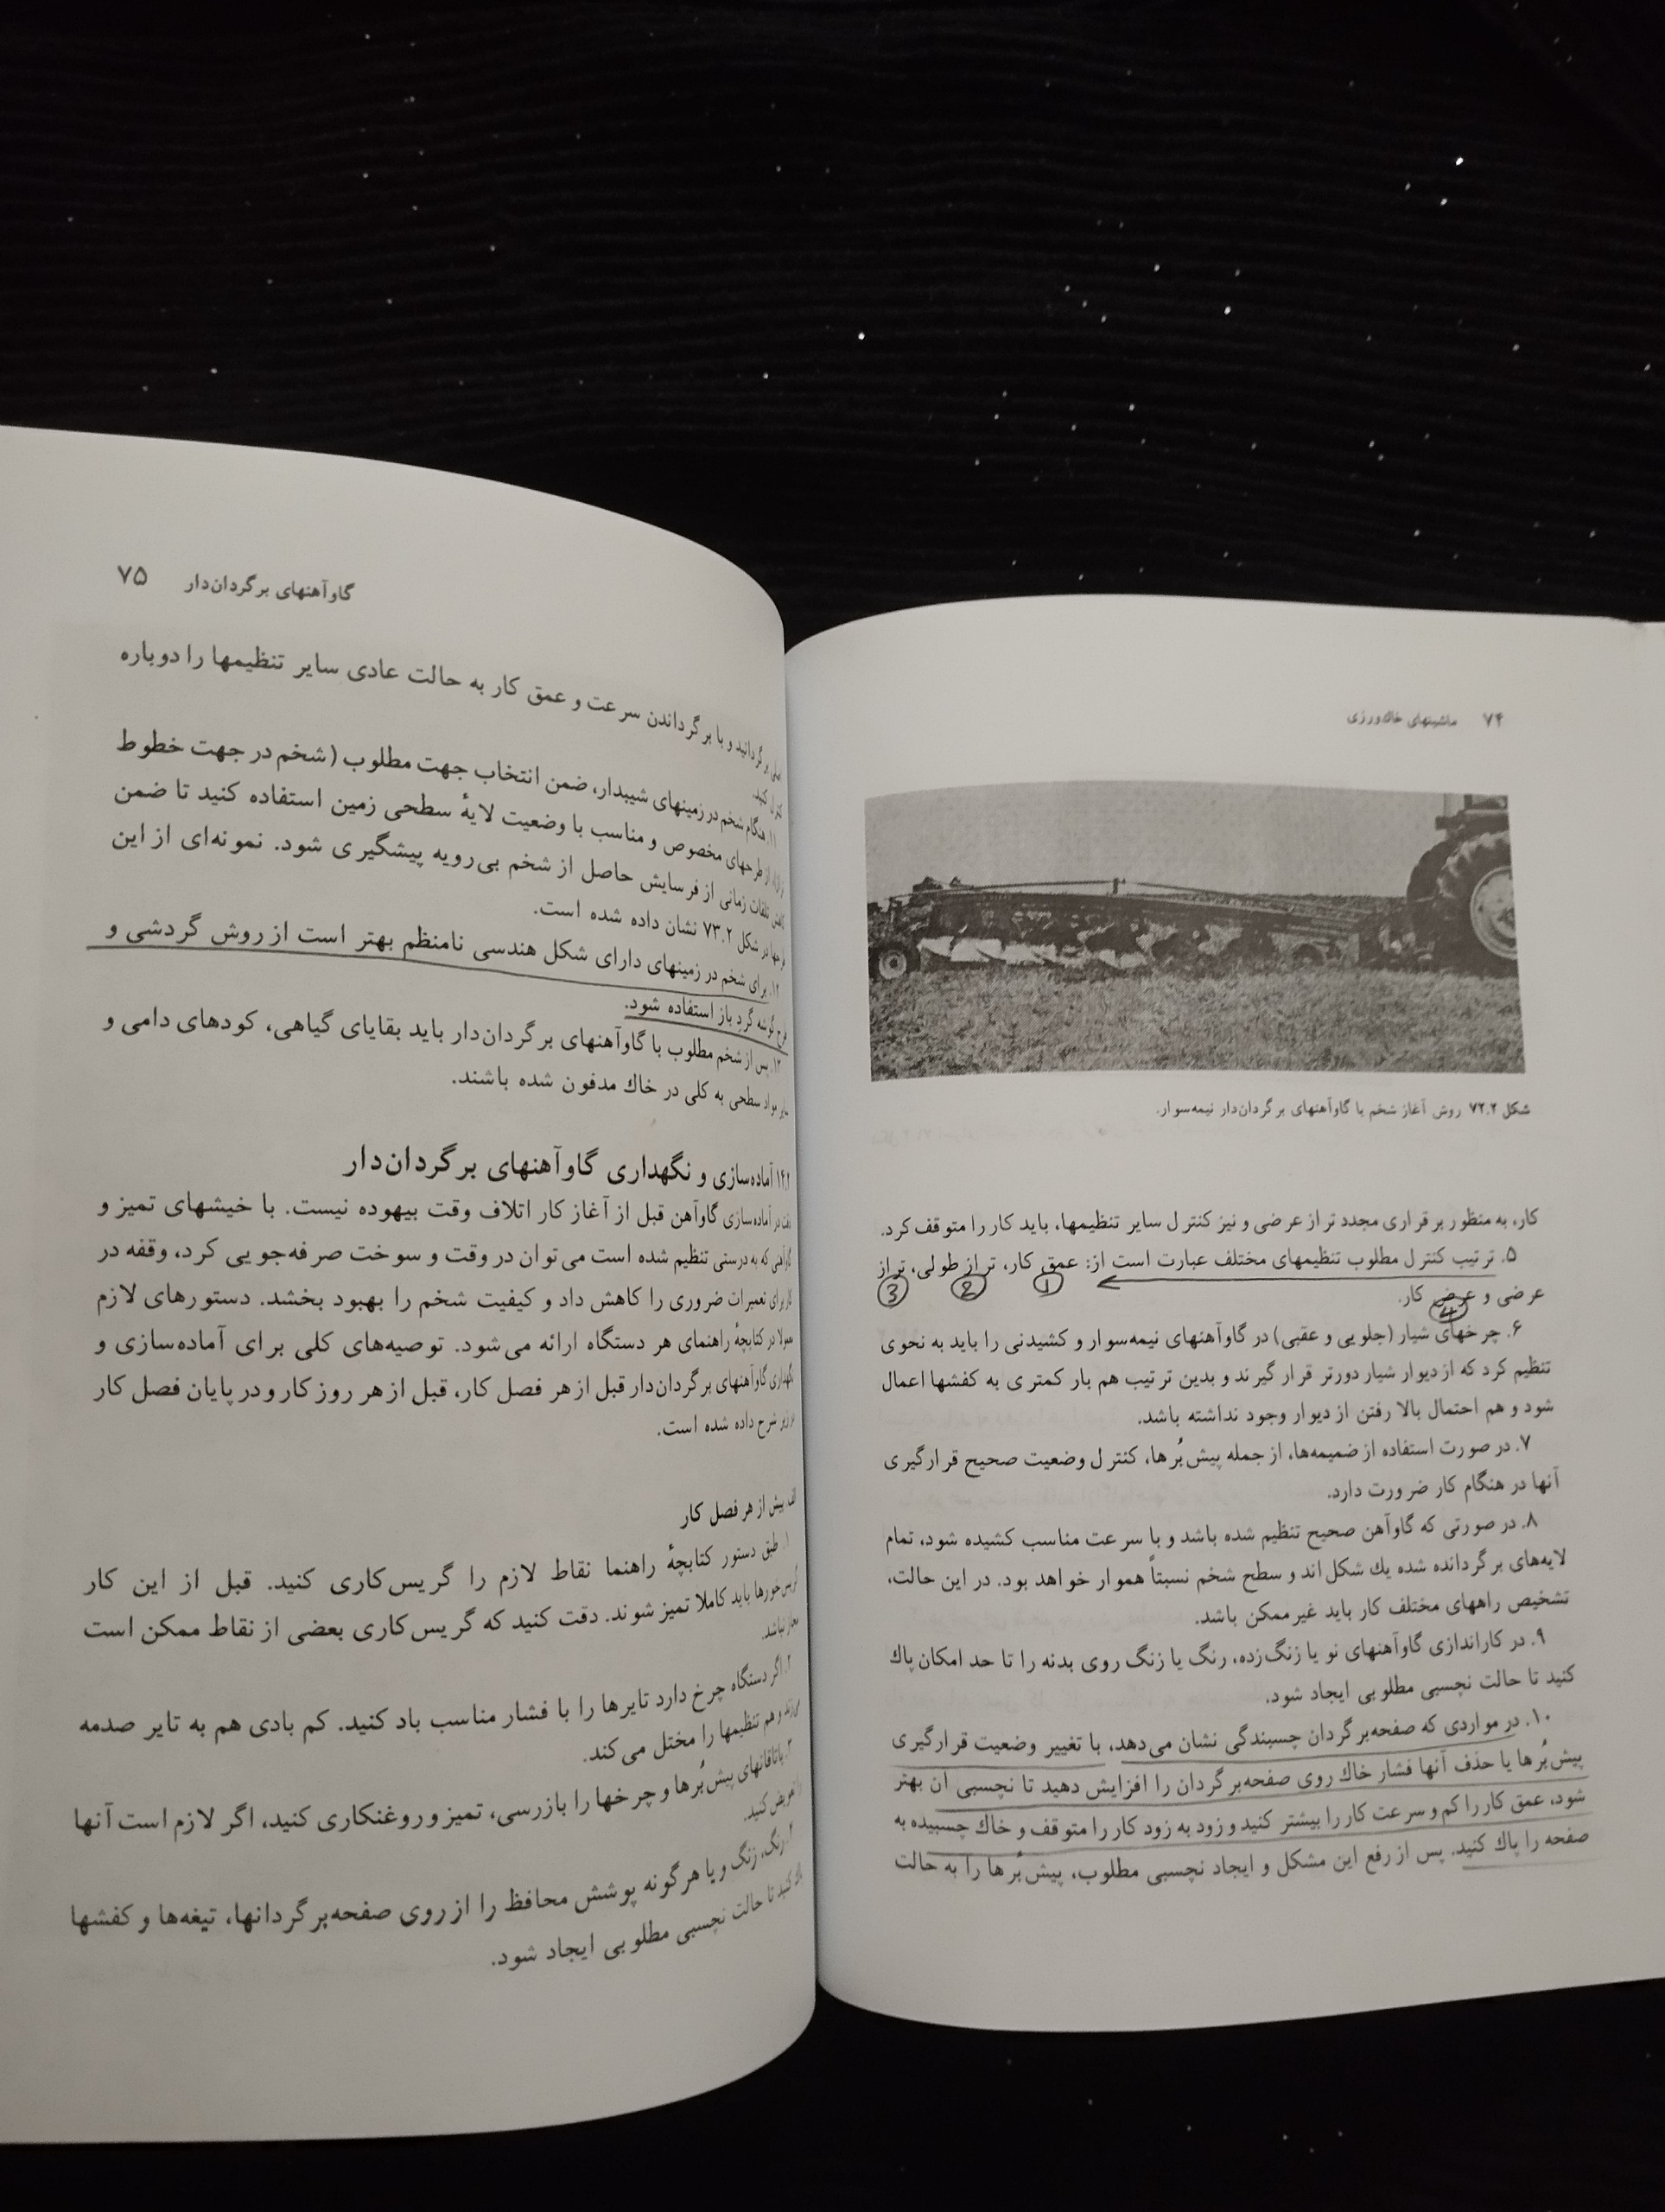 ۷۴ ماشینهای خاک‌ورزی
شکل ۷۲.۲ روش آغاز شخم با گاوآهنهای برگردان‌دار نیمه‌سوار.
کار، به منظور برقراری مجدد تراز عرضی و نیز کنترل سایر تنظیمها، باید کار را متوقف کرد.
۵. ترتیب کنترل مطلوب تنظیمهای مختلف عبارت است از: عمق کار، تراز طولی، تراز
1 2 3
عرضی و عرض کار.
4
۶. چرخهای شیار (جلویی و عقبی) در گاوآهنهای نیمه‌سوار و کشیدنی را باید به نحوی
تنظیم کرد که از دیوار شیار دورتر قرار گیرند و بدین ترتیب هم بار کمتری به کفشها اعمال
شود و هم احتمال بالا رفتن از دیوار وجود نداشته باشد.
۷. در صورت استفاده از ضمیمه‌ها، از جمله پیش‌بُرها، کنترل وضعیت صحیح قرارگیری
آنها در هنگام کار ضرورت دارد.
۸. در صورتی که گاوآهن صحیح تنظیم شده باشد و با سرعت مناسب کشیده شود، تمام
لایه‌های برگردانده شده یك شکل‌اند و سطح شخم نسبتاً هموار خواهد بود. در این حالت،
تشخیص راههای مختلف کار باید غیرممکن باشد.
۹. در کاراندازی گاوآهنهای نو یا زنگ‌زده، رنگ یا زنگ روی بدنه را تا حد امکان پاك
کنید تا حالت نچسبی مطلوبی ایجاد شود.
۱۰. در مواردی که صفحه‌برگردان چسبندگی نشان می‌دهد، با تغییر وضعیت قرارگیری
پیش‌بُرها یا حذف آنها فشار خاك روی صفحه‌برگردان را افزایش دهید تا نچسبی آن بهتر
شود، عمق کار را کم و سرعت کار را بیشتر کنید و زود به زود کار را متوقف و خاك چسبیده به
صفحه را پاك کنید. پس از رفع این مشکل و ایجاد نچسبی مطلوب، پیش‌بُرها را به حالت
گاوآهنهای برگردان‌دار ۷۵
اصلی برگردانید و با برگرداندن سرعت و عمق کار به حالت عادی سایر تنظیمها را دوباره
کنترل کنید.
۱۱. هنگام شخم در زمینهای شیبدار، ضمن انتخاب جهت مطلوب (شخم در جهت خطوط
از طرحهای مخصوص و مناسب با وضعیت لایهٔ سطحی زمین استفاده کنید تا ضمن
کاهش تلفات زمانی از فرسایش حاصل از شخم بی‌رویه پیشگیری شود. نمونه‌ای از این
طرحها در شکل ۷۳.۲ نشان داده شده است.
۱۲. برای شخم در زمینهای دارای شکل هندسی نامنظم بهتر است از روش گردشی و
طرح گوشه گرد باز استفاده شود.
۱۳. پس از شخم مطلوب با گاوآهنهای برگردان‌دار باید بقایای گیاهی، کودهای دامی و
سایر مواد سطحی به کلی در خاك مدفون شده باشند.
آماده‌سازی و نگهداری گاوآهنهای برگردان‌دار
دقت در آماده‌سازی گاوآهن قبل از آغاز کار اتلاف وقت بیهوده نیست. با خیشهای تمیز و
گاوآهنی که به درستی تنظیم شده است می‌توان در وقت و سوخت صرفه‌جویی کرد، وقفه در
کار برای تعمیرات ضروری را کاهش داد و کیفیت شخم را بهبود بخشد. دستورهای لازم
معمولا در کتابچهٔ راهنمای هر دستگاه ارائه می‌شود. توصیه‌های کلی برای آماده‌سازی و
نگهداری گاوآهنهای برگردان‌دار قبل از هر فصل کار، قبل از هر روز کار و در پایان فصل کار
در زیر شرح داده شده است.
الف. پیش از هر فصل کار
۱. طبق دستور کتابچهٔ راهنما نقاط لازم را گریس‌کاری کنید. قبل از این کار
گریس‌خورها باید کاملا تمیز شوند. دقت کنید که گریس‌کاری بعضی از نقاط ممکن است
مجاز نباشد.
۲. اگر دستگاه چرخ دارد تایرها را با فشار مناسب باد کنید. کم بادی هم به تایر صدمه
می‌زند و هم تنظیمها را مختل می‌کند.
۳. یاتاقانهای پیش‌بُرها و چرخها را بازرسی، تمیز و روغنکاری کنید، اگر لازم است آنها
را تعویض کنید.
۴. رنگ، زنگ و یا هرگونه پوشش محافظ را از روی صفحه‌برگردانها، تیغه‌ها و کفشها
پاك کنید تا حالت نچسبی مطلوبی ایجاد شود.